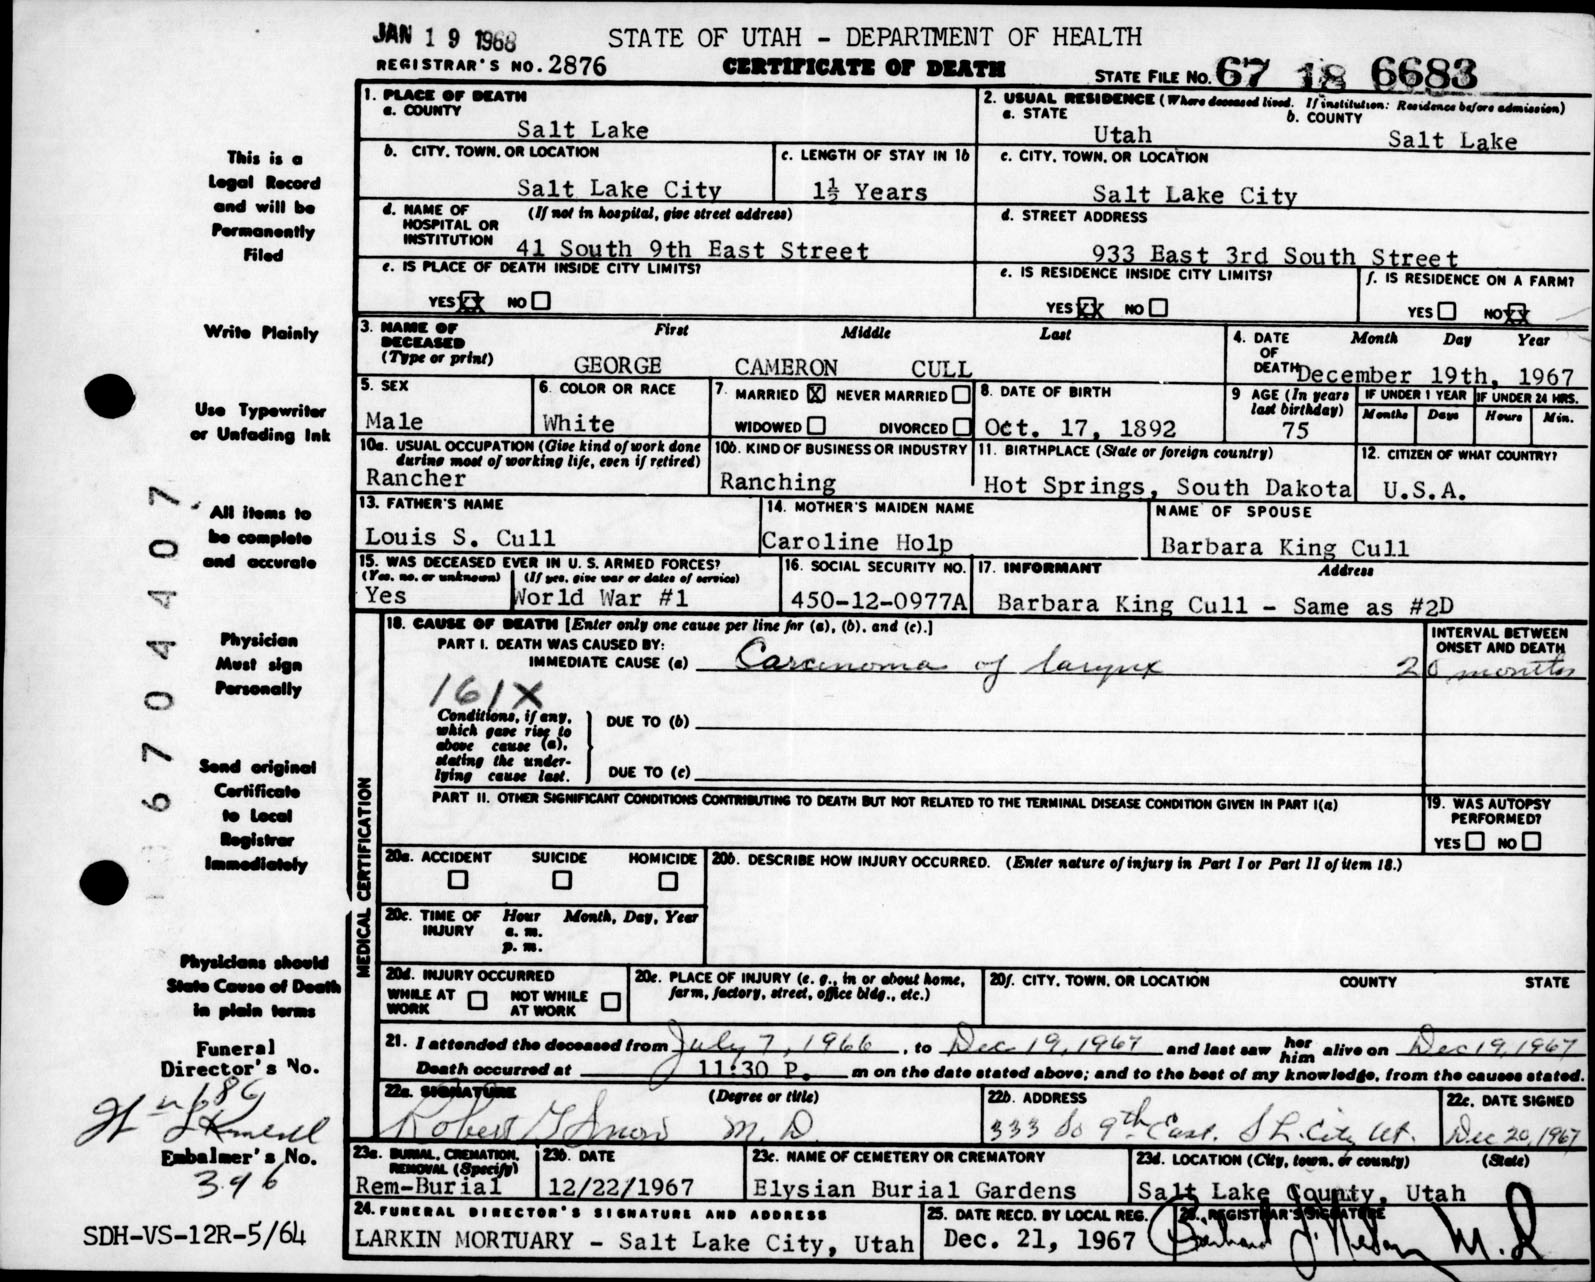 JAN 19 1968
STATE OF UTAH - DEPARTMENT OF HEALTH
REGISTRAR'S NO. 2876
CERTIFICATE OF DEATH
STATE FILE NO. 67 18 6683
1. PLACE OF DEATH
a. COUNTY
Salt Lake
2. USUAL RESIDENCE (Where deceased lived. If institution: Residence before admission)
a. STATE
Utah
b. COUNTY
Salt Lake
b. CITY, TOWN, OR LOCATION
Salt Lake City
c. LENGTH OF STAY IN 1b
1½ Years
c. CITY, TOWN, OR LOCATION
Salt Lake City
d. NAME OF HOSPITAL OR INSTITUTION
(If not in hospital, give street address)
41 South 9th East Street
d. STREET ADDRESS
933 East 3rd South Street
e. IS PLACE OF DEATH INSIDE CITY LIMITS?
YES XX NO
e. IS RESIDENCE INSIDE CITY LIMITS?
YES XX NO
f. IS RESIDENCE ON A FARM?
YES NO XX
3. NAME OF DECEASED
(Type or print)
First Middle Last
GEORGE CAMERON CULL
4. DATE OF DEATH
Month Day Year
December 19th, 1967
5. SEX
Male
6. COLOR OR RACE
White
7. MARRIED X NEVER MARRIED
WIDOWED DIVORCED
8. DATE OF BIRTH
Oct. 17, 1892
9 AGE (In years last birthday)
75
IF UNDER 1 YEAR
Months Days
IF UNDER 24 HRS.
Hours Min.
10a. USUAL OCCUPATION (Give kind of work done during most of working life, even if retired)
Rancher
10b. KIND OF BUSINESS OR INDUSTRY
Ranching
11. BIRTHPLACE (State or foreign country)
Hot Springs, South Dakota
12. CITIZEN OF WHAT COUNTRY?
U.S.A.
13. FATHER'S NAME
Louis S. Cull
14. MOTHER'S MAIDEN NAME
Caroline Holp
NAME OF SPOUSE
Barbara King Cull
15. WAS DECEASED EVER IN U. S. ARMED FORCES?
(Yes, no, or unknown) (If yes, give war or dates of service)
Yes World War #1
16. SOCIAL SECURITY NO.
450-12-0977A
17. INFORMANT Address
Barbara King Cull - Same as #2D
MEDICAL CERTIFICATION
18. CAUSE OF DEATH [Enter only one cause per line for (a), (b), and (c).]
PART I. DEATH WAS CAUSED BY:
IMMEDIATE CAUSE (a) Carcinoma of larynx
INTERVAL BETWEEN ONSET AND DEATH
20 months
161X
Conditions, if any, which gave rise to above cause (a), stating the underlying cause last.
DUE TO (b)
DUE TO (c)
PART II. OTHER SIGNIFICANT CONDITIONS CONTRIBUTING TO DEATH BUT NOT RELATED TO THE TERMINAL DISEASE CONDITION GIVEN IN PART I(a)
19. WAS AUTOPSY PERFORMED?
YES NO
20a. ACCIDENT SUICIDE HOMICIDE
20b. DESCRIBE HOW INJURY OCCURRED. (Enter nature of injury in Part I or Part II of item 18.)
20c. TIME OF INJURY
Hour Month, Day, Year
a. m.
p. m.
20d. INJURY OCCURRED
WHILE AT WORK NOT WHILE AT WORK
20e. PLACE OF INJURY (e. g., in or about home, farm, factory, street, office bldg., etc.)
20f. CITY, TOWN, OR LOCATION COUNTY STATE
21. I attended the deceased from July 7, 1966, to Dec 19, 1967 and last saw her him alive on Dec 19, 1967
Death occurred at 11:30 P. m on the date stated above; and to the best of my knowledge, from the causes stated.
22a. SIGNATURE (Degree or title)
Robert G Snow M.D.
22b. ADDRESS
333 So 9th East. S L. City Ut.
22c. DATE SIGNED
Dec 20, 1967
23a. BURIAL, CREMATION, REMOVAL (Specify)
Rem-Burial
23b. DATE
12/22/1967
23c. NAME OF CEMETERY OR CREMATORY
Elysian Burial Gardens
23d. LOCATION (City, town, or county) (State)
Salt Lake County, Utah
24. FUNERAL DIRECTOR'S SIGNATURE AND ADDRESS
LARKIN MORTUARY - Salt Lake City, Utah
25. DATE RECD. BY LOCAL REG.
Dec. 21, 1967
26. REGISTRAR'S SIGNATURE
M.D.
This is a
Legal Record
and will be
Permanently
Filed
Write Plainly
Use Typewriter
or Unfading Ink
All items to
be complete
and accurate
Physician
Must sign
Personally
Send original
Certificate
to Local
Registrar
Immediately
Physicians should
State Cause of Death
in plain terms
Funeral
Director's No.
686
Embalmer's No.
396
SDH-VS-12R-5/64
6704407